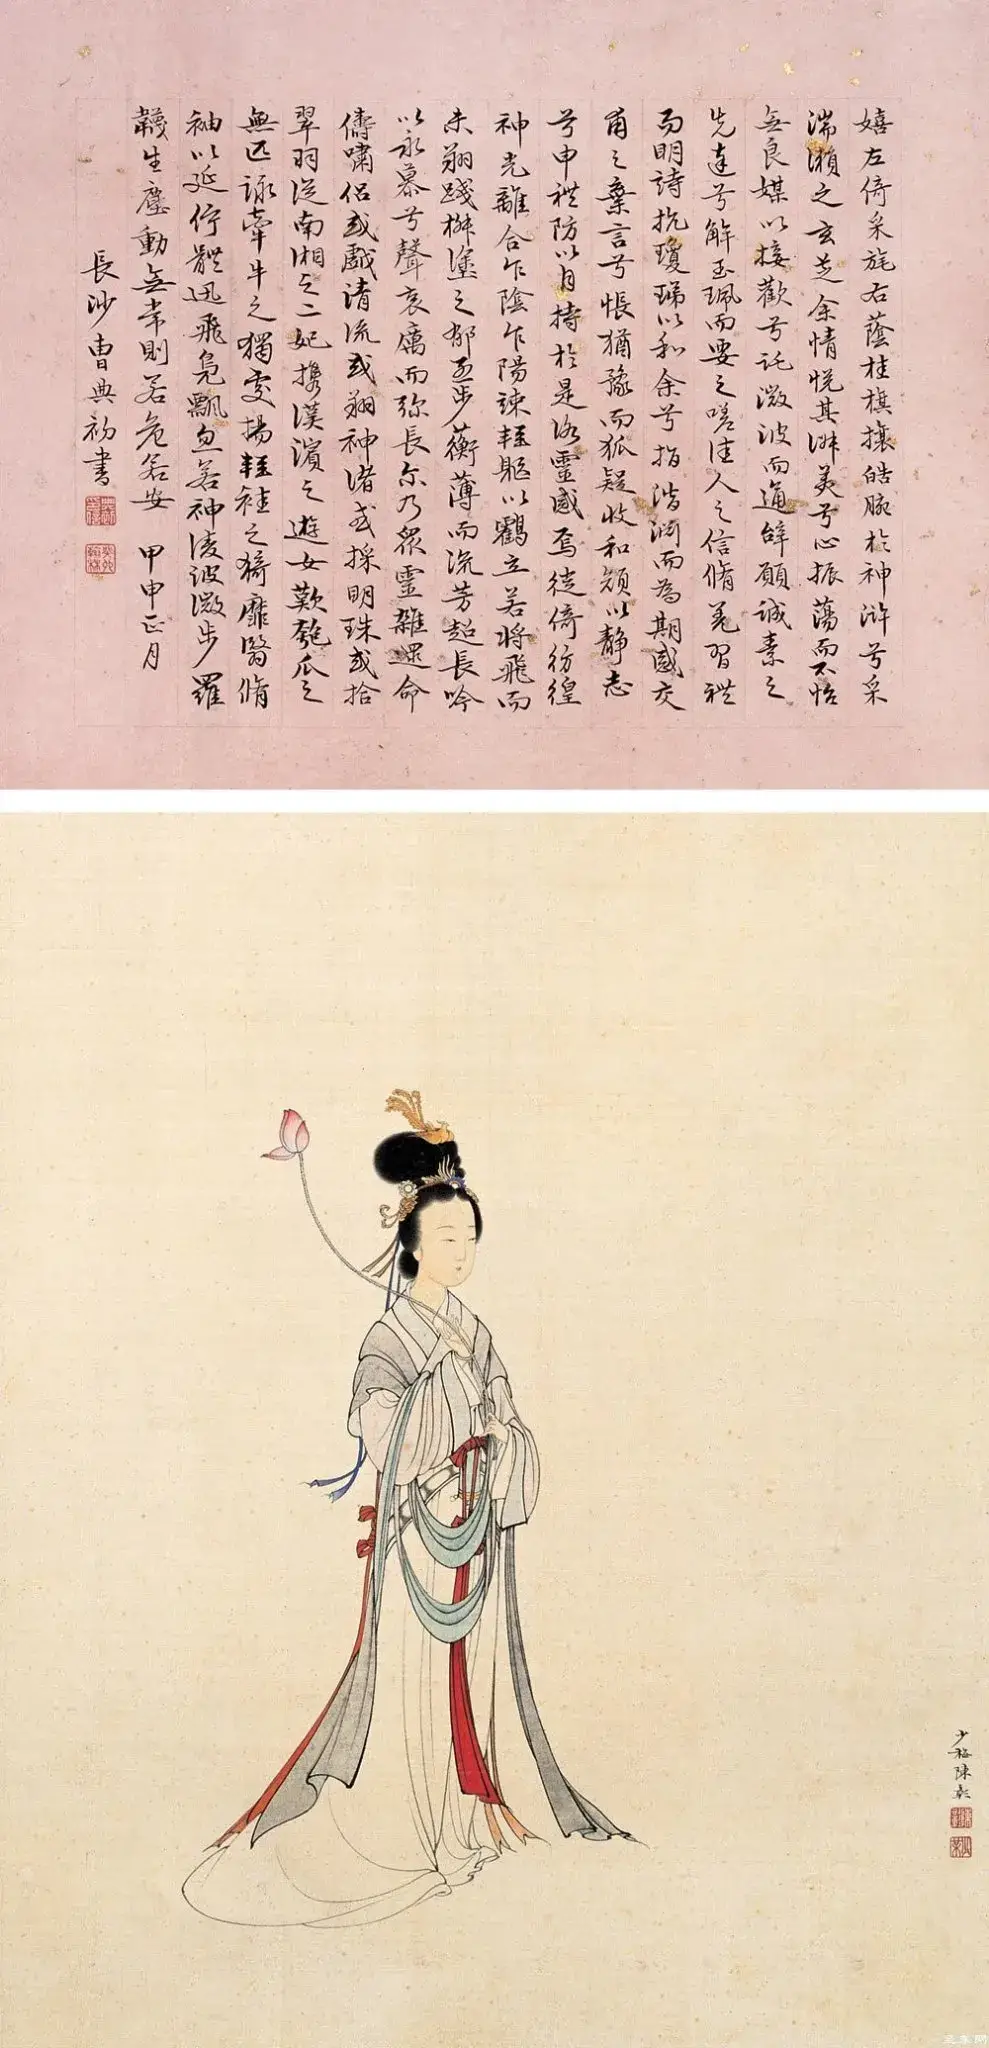 嬉左倚采旄右蔭桂旗攘皓腕於神滸兮采
湍瀨之玄芝余情悅其淑美兮心振蕩而不怡
無良媒以接歡兮託微波而通辭願誠素之
先達兮解玉珮而要之嗟佳人之信脩羌習禮
而明詩抗瓊珶以和余兮指潛淵而為期感交
甫之棄言兮悵猶豫而狐疑收和顏以靜志
兮申禮防以自持於是洛靈感焉徙倚彷徨
神光離合乍陰乍陽竦輕軀以鶴立若將飛而
未翔踐椒塗之郁烈步蘅薄而流芳超長吟
以永慕兮聲哀厲而彌長尒乃眾靈雜遝命
儔嘯侶或戲清流或翔神渚或採明珠或拾
翠羽從南湘之二妃攜漢濱之遊女歎匏瓜之
無匹詠牽牛之獨處揚輕袿之猗靡翳脩
袖以延佇體迅飛鳧飄忽若神淩波微步羅
韈生塵動無常則若危若安 甲申正月
長沙曹典初書
少梅陳彰